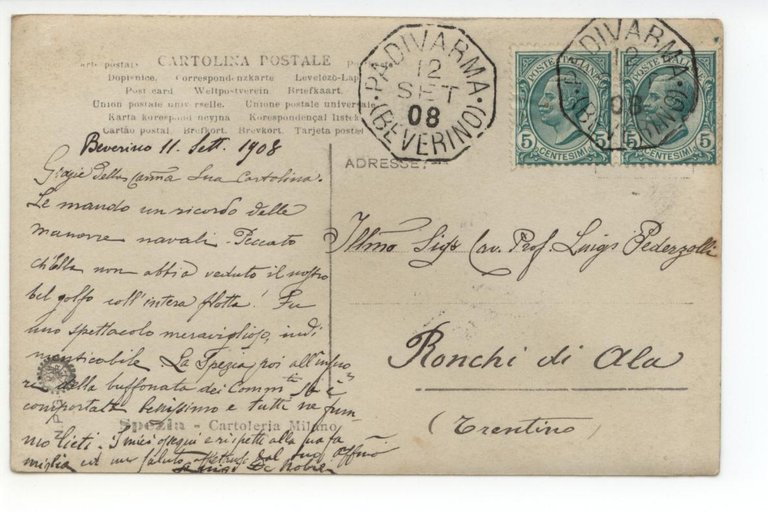 CARTOLINA POSTALE
Dopisnice. Correspondenzkarte Levelező-Lap
Post card Weltpostverein Briefkaart.
Union postale universelle. Unione postale universale
Karta korespondencyjna Korespondenčni listek
Cartão postal Brefkort. Brevkort. Tarjeta postal
PADIVARMA
12
SET
08
(BEVERINO)
POSTE ITALIANE
5 5
CENTESIMI
POSTE ITALIANE
5 5
CENTESIMI
PADIVARMA
12
08
(BEVERINO)
ADRESSE:
Beverino 11. Sett. 1908
Grazie della Sua Cartolina.
Le mando un ricordo delle
manovre navali. Peccato
ch'Ella non abbia veduto il nostro
bel golfo coll'intera flotta! Fu
uno spettacolo meraviglioso, indi
menticabile. La Spezia poi all'infuo
ri della buffonata dei si è
comportata benissimo e tutti ne fum
mo lieti. I miei ossequi e rispetti alla sua fa
miglia ed un saluto affettuoso dal suo affmo
Illmo Sigr Cav. Prof. Luigi Pederzolli
Ronchi di Ala
(Trentino)
Spezia - Cartoleria Milano
N.P.G.